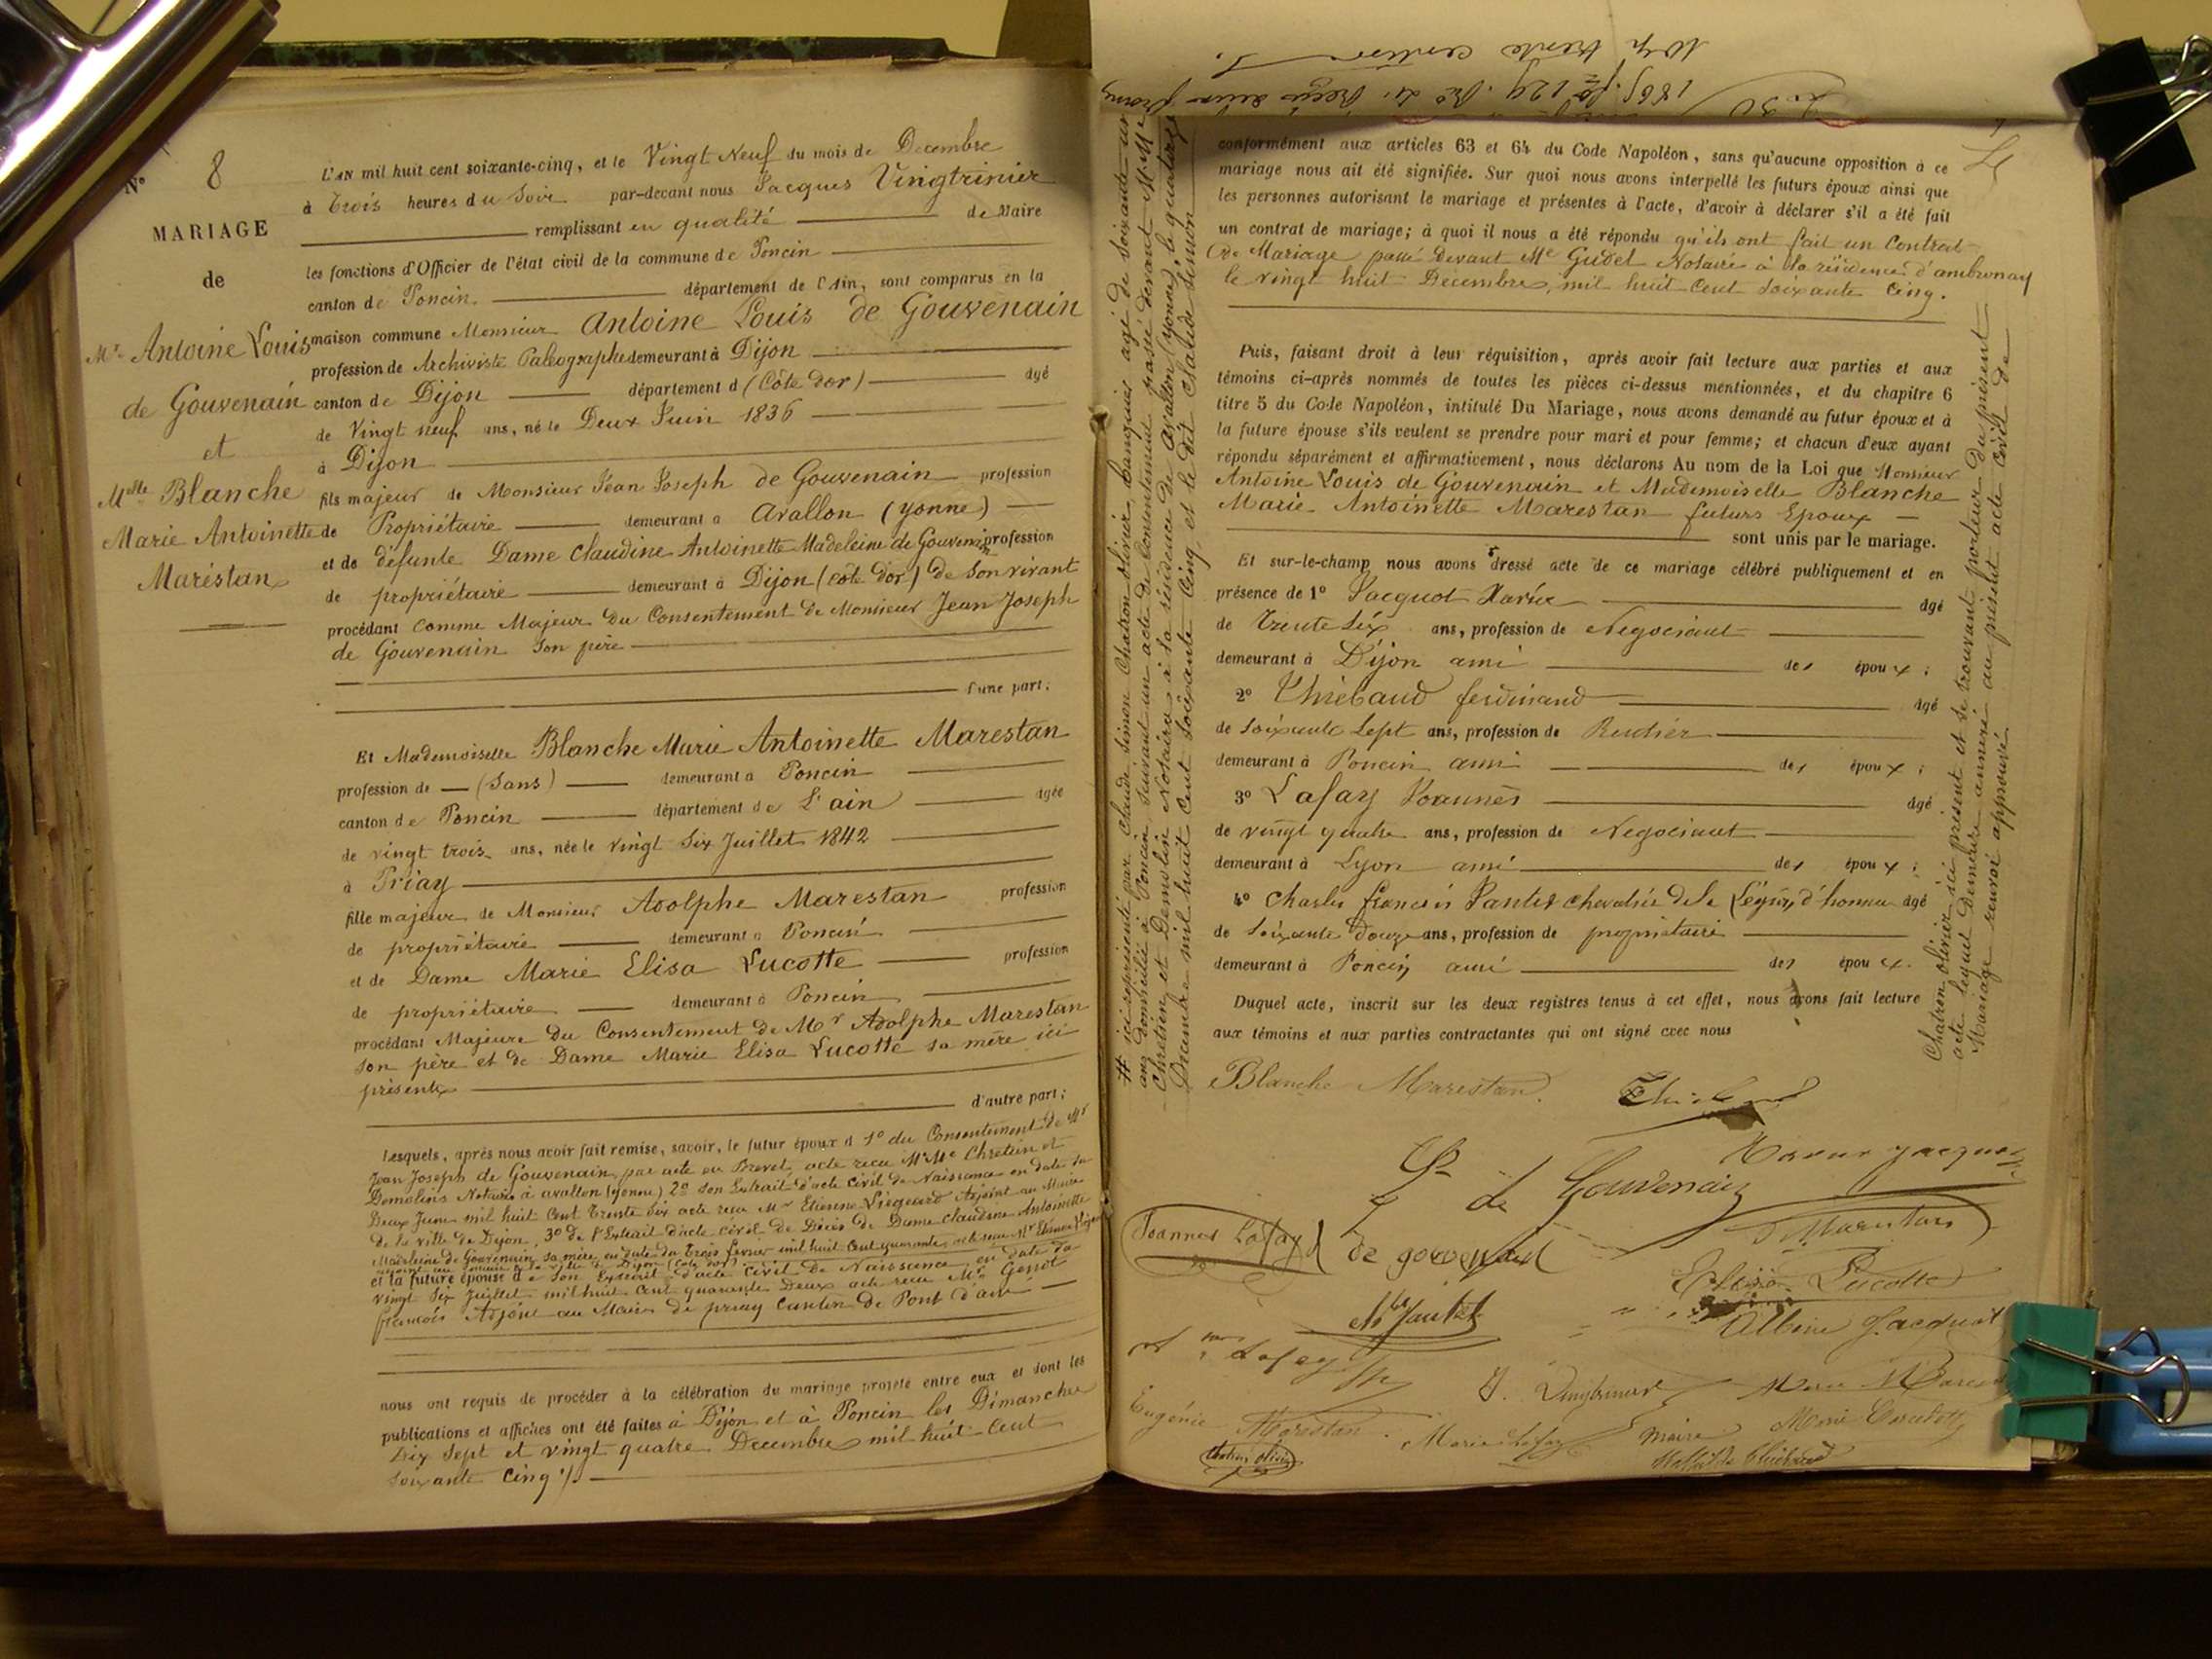 N° 8
MARIAGE
de
Mr Antoine Louis
de Gouvenain
et
Melle Blanche
Marie Antoinette
Marestan
L'AN mil huit cent soixante-cinq, et le Vingt Neuf du mois de Decembre
à Trois heures du Soir par-devant nous Jacques Vingtrinier
remplissant en qualité de Maire
les fonctions d'Officier de l'état civil de la commune de Poncin
canton de Poncin département de l'Ain, sont comparus en la
maison commune Monsieur Antoine Louis de Gouvenain
profession de Archiviste Paléographe demeurant à Dijon
canton de Dijon département d (Côte d'or) âgé
de Vingt neuf ans, né le Deux Juin 1836
à Dijon
fils majeur de Monsieur Jean Joseph de Gouvenain profession
de Propriétaire demeurant à Avallon (yonne)
et de défunte Dame Claudine Antoinette Madeleine de Gouvenain profession
de propriétaire demeurant à Dijon (côte d'or) de Son vivant
procédant comme Majeur du Consentement de Monsieur Jean Joseph
de Gouvenain Son père
d'une part;
Et Mademoiselle Blanche Marie Antoinette Marestan
profession de (Sans) demeurant à Poncin
canton de Poncin département de L'ain âgée
de vingt trois ans, née le vingt Six Juillet 1842
à Priay
fille majeure de Monsieur Adolphe Marestan profession
de propriétaire demeurant à Poncin
et de Dame Marie Elisa Lucotte profession
de propriétaire demeurant à Poncin
procédant Majeure du Consentement de Mr Adolphe Marestan
son père et de Dame Marie Elisa Lucotte sa mère ici
présents
d'autre part;
Lesquels, après nous avoir fait remise, savoir, le futur époux d 1° du Consentement de Mr
Jean Joseph de Gouvenain par acte en Brevet, acte reçu Chretien et
Demolins Notaires à avallon (yonne) 2° Son Extrait d'acte civil de Naissance en date du
Deux Juin mil huit Cent Trente Six acte reçu Mr Etienne Liegeard Adjoint au Maire
de la ville de Dijon, 3° de l'Extrait d'acte civil de Décès de Dame Claudine Antoinette
Madeleine de Gouvenain sa mère, en date du Trois fevrier mil huit Cent quarante, acte reçu Mr Etienne
adjoint au maire de la ville de Dijon (Côte d'or)
et la future épouse d e Son Extrait d'acte civil de Naissance en date du
vingt Six Juillet mil huit Cent quarante Deux acte reçu Mr Genod
francois Adjoint au Maire de priay Canton de Pont d'ain
nous ont requis de procéder à la célébration du mariage projeté entre eux et dont les
publications et affiches ont été faites à Dijon et à Poncin les Dimanches
Dix Sept et vingt quatre Decembre mil huit Cent
Soixante Cinq
# ici représenté par Claude Simon Chatron olivier, banquier agé de Soixante un
ans domicilié à Poncin, Suivant un acte de Consentement passé devant
Chretien et Demolin Notaires à la résidence de Avallon (yonne), le quatorze
Decembre mil huit Cent Soixante Cinq et le dit Claude Simon
Chatron olivier ici présent et se trouvant porteur du présent
acte lequel Demeure annexé au présent acte civil de
Mariage renvoi approuvé
conformément aux articles 63 et 64 du Code Napoléon, sans qu'aucune opposition à ce
mariage nous ait été signifiée. Sur quoi nous avons interpellé les futurs époux ainsi que
les personnes autorisant le mariage et présentes à l'acte, d'avoir à déclarer s'il a été fait
un contrat de mariage; à quoi il nous a été répondu qu'ils ont fait un Contrat
de Mariage passé Devant Me Gudet Notaire à la résidence d'ambronay
le vingt huit Decembre, mil huit Cent Soixante Cinq.
Puis, faisant droit à leur réquisition, après avoir fait lecture aux parties et aux
témoins ci-après nommés de toutes les pièces ci-dessus mentionnées, et du chapitre 6
titre 5 du Code Napoléon, intitulé Du Mariage, nous avons demandé au futur époux et à
la future épouse s'ils veulent se prendre pour mari et pour femme; et chacun d'eux ayant
répondu séparément et affirmativement, nous déclarons Au nom de la Loi que Monsieur
Antoine Louis de Gouvenain et Mademoiselle Blanche
Marie Antoinette Marestan futurs Epoux
sont unis par le mariage.
Et sur-le-champ nous avons dressé acte de ce mariage célébré publiquement et en
présence de 1° Jacquot Xavier âgé
de Trente Six ans, profession de Negociant
demeurant à Dijon ami des époux;
2° Thiébaud ferdinand âgé
de Soixante Sept ans, profession de Rentier
demeurant à Poncin ami des époux;
3° Lafay Joannès âgé
de vingt quatre ans, profession de Negociant
demeurant à Lyon ami des époux;
4° Charles francois Jantet chevalier de la Légion d'honneur âgé
de Soixante Douze ans, profession de propriétaire
demeurant à Poncin ami des époux.
Duquel acte, inscrit sur les deux registres tenus à cet effet, nous avons fait lecture
aux témoins et aux parties contractantes qui ont signé avec nous
Blanche Marestan
L de Gouvenain
Joannes Lafay
de gouvenain
Elisa Lucotte
Ch Jantet
Albine Jacquot
Lafay
Eugénie Marestan
Marie Lafay
Maire
Chatron olivier